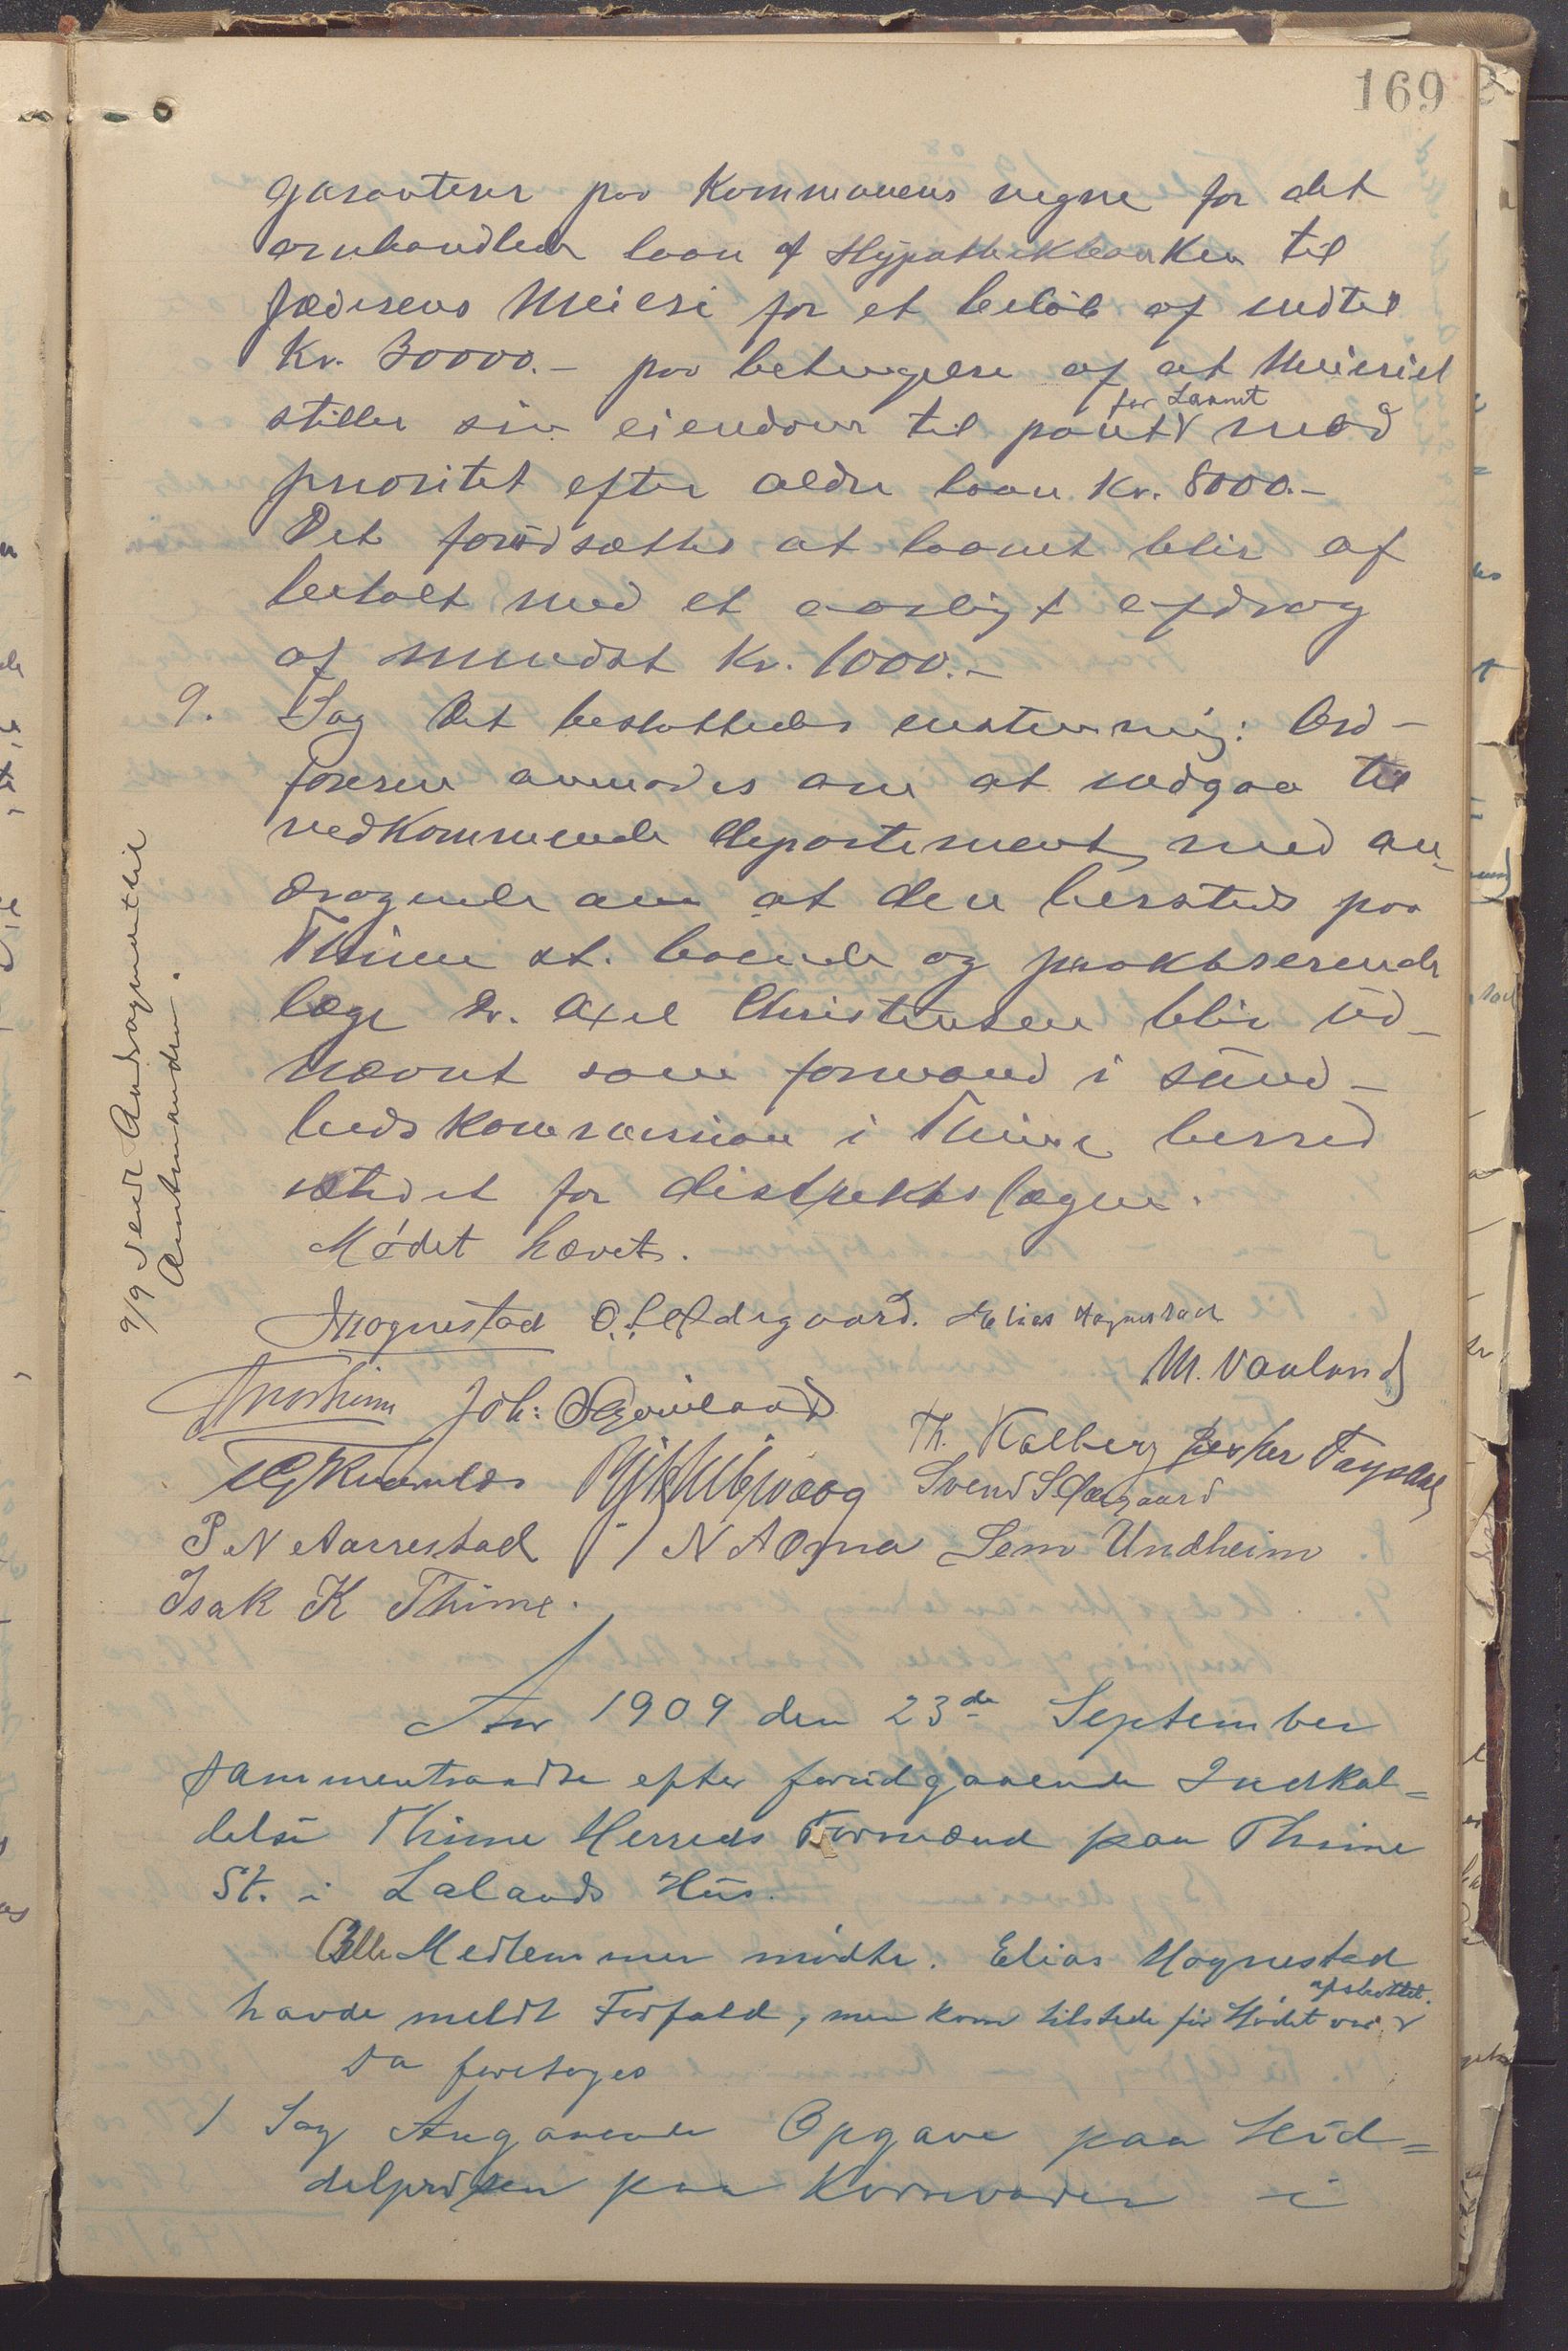 169
garanterer paa Kommunens vegne for det
omhandlede laan af Hypothekbanken til
Jæderens Meieri for et beløb af indtil
Kr. 30000.– paa betingelse af at Meieriet
for Laanet
stiller sin eiendom til pant med
prioritet efter ældre laan Kr. 8000.–
Det forudsættes at laanet blir af
betalt med et aarligt afdrag
af mindst Kr. 1000.–
9. Sag Det besluttedes enstemmig: Ord–
føreren anmodes om at indgaa til
vedkommende departement med an–
dragende om at den hersteds paa
Thime st. boende og praktiserende
læge Dr. Axel Christensen blir ud–
nævnt som formand i sund–
hedskommission i Thime herred
istedet for distriktslægen.
Mødet hævet.
9/9 sendt Andragendet til
Amtmanden.
Mognestad O. S. Ødegaard. Elias Hognestad
M. Vauland
Joh:
Th. Kalberg
Svend S Ødegaard
P N Aarrestad N A Orna Sem Undheim
Isak K Thime.
Aar 1909 den 23de September
sammentraadte efter forudgaaende Indkal=
delse Thime Herreds Formænd paa Thime
St. i Lalands Hus.
Alle Medlemmer mødte. Elias Hognestad
afsluttet.
havde meldt Forfald, men kom tilstede før Mødet var
Da foretoges
1 Sag Angaaende Opgave paa Mid=
delprisen paa Kornvarer i